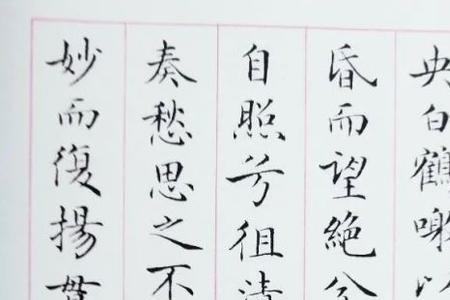 央白鶴噭以
昏而望絕兮
自照兮徂清
奏愁思之不
妙而復揚貫